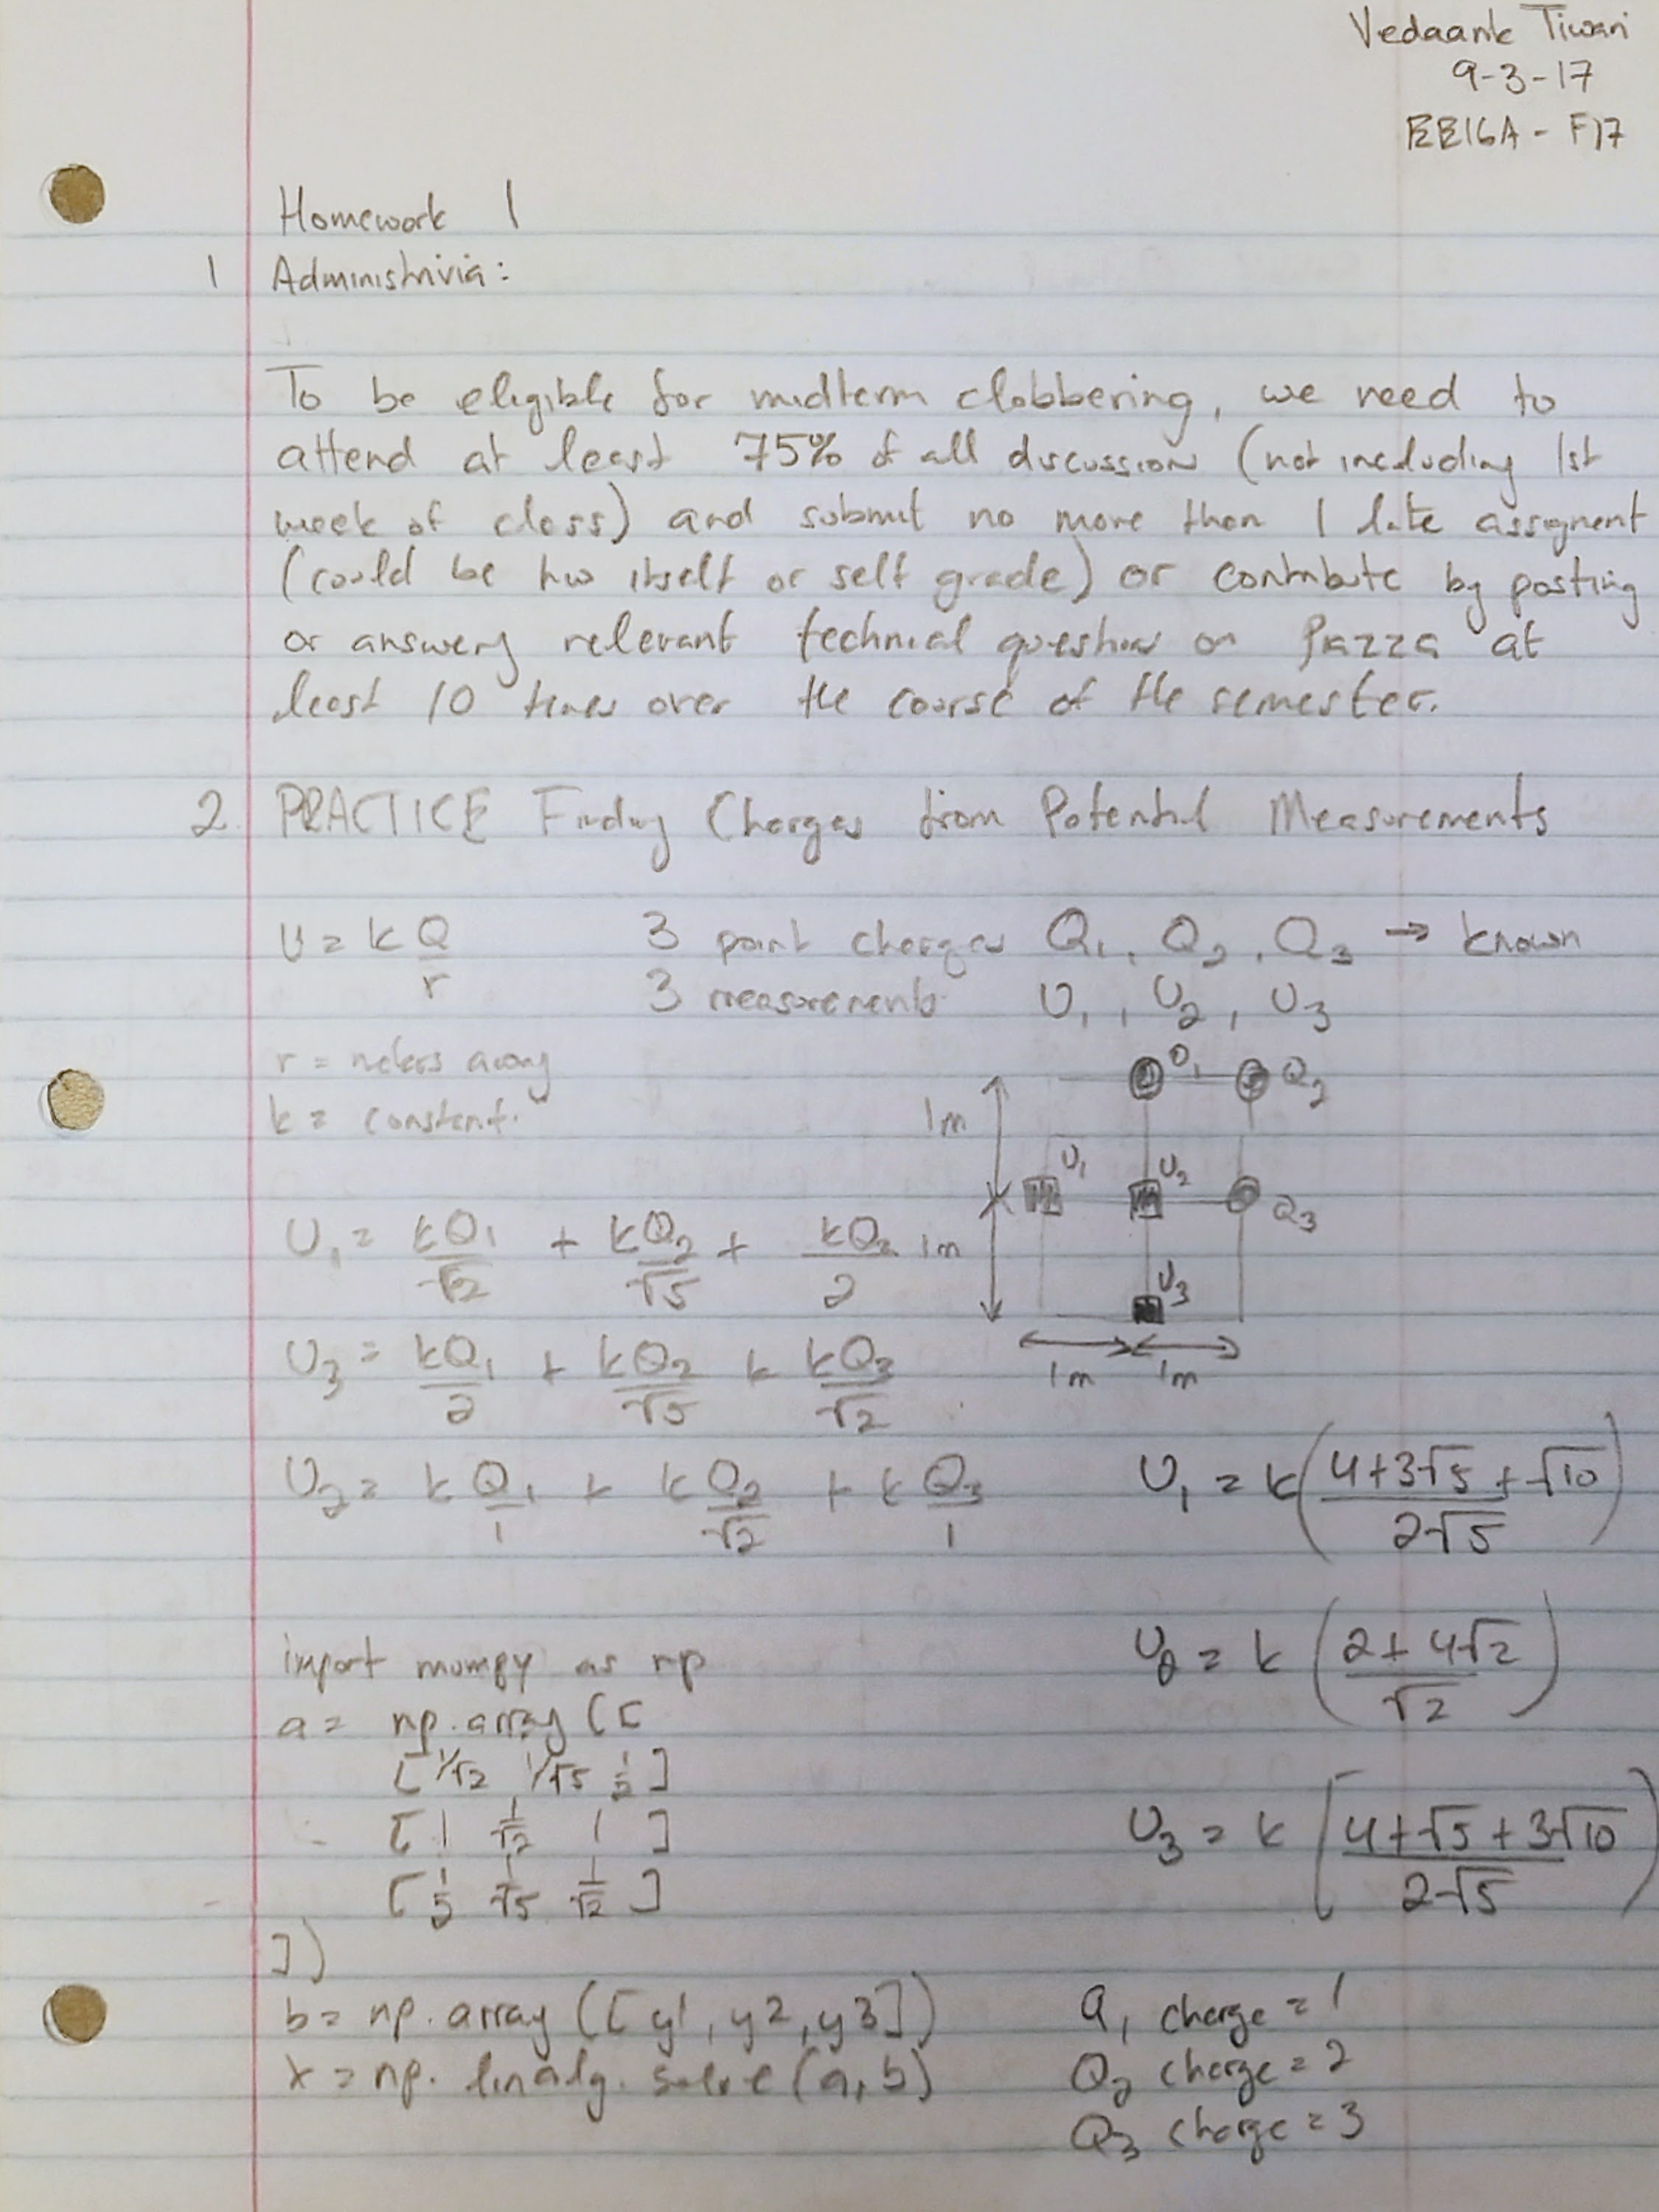 Vedaank Tiwari
9-3-17
EE16A - F17
Homework 1
1 Administrivia:
To be eligible for midterm clobbering, we need to
attend at least 75% of all discussion (not including 1st
week of class) and submit no more than 1 late assignment
(could be hw itself or self grade) or contribute by posting
or answering relevant technical question on Piazza at
least 10 times over the course of the semester.
2. PRACTICE Finding Charges from Potential Measurements
U = k Q/r 3 point charges Q₁, Q₂, Q₃ → known
3 measurements U₁, U₂, U₃
r = meters away
k = constant.
Q₁ Q₂
1m
U₁ U₂ Q₃
1m
U₃
1m 1m
U₁ = kQ₁/√2 + kQ₂/√5 + kQ₃/2
U₃ = kQ₁/2 + kQ₂/√5 + kQ₃/√2
U₂ = k Q₁/1 + k Q₂/√2 + k Q₃/1
U₁ = k((4+3√5+√10)/(2√5))
U₂ = k((2+4√2)/√2)
U₃ = k((4+√5+3√10)/(2√5))
import numpy as np
a = np.array([
[1/√2 1/√5 1/2]
[1 1/√2 1]
[1/2 1/√5 1/√2]
])
b = np.array([y1, y2, y3])
x = np.linalg.solve(a, b)
Q₁ charge = 1
Q₂ charge = 2
Q₃ charge = 3